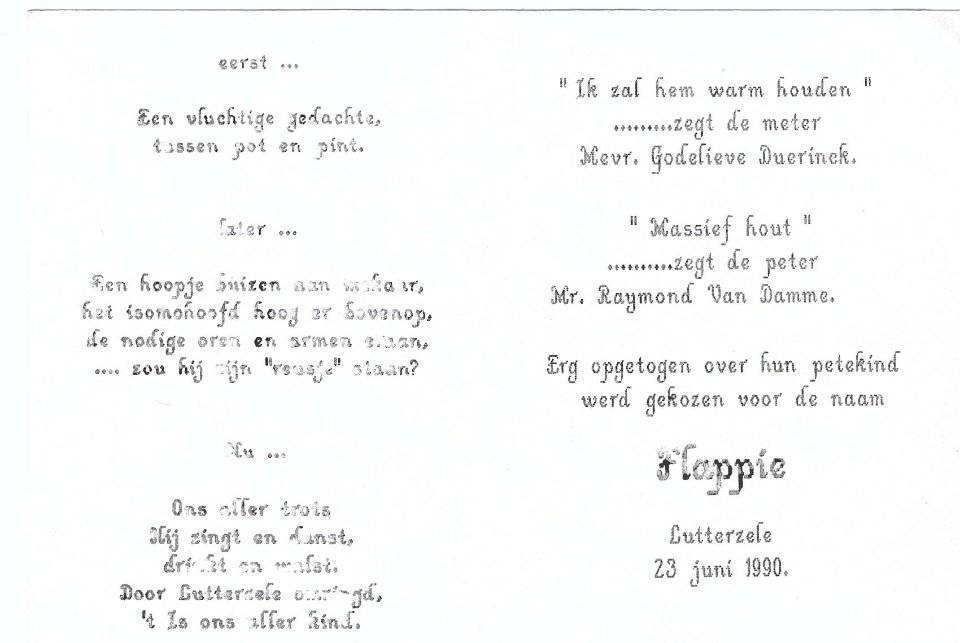 eerst ...
Een vluchtige gedachte,
tussen pot en pint.
later ...
Een hoopje buizen aan makaar,
het isomohoofd hoog er bovenop,
de nodige oren en armen eraan,
.... zou hij zijn "reusje" staan?
Nu ...
Ons aller trots
Hij zingt en danst,
drinkt en walst.
Door Lutterzele omringd,
't Is ons aller kind.
" Ik zal hem warm houden "
.........zegt de meter
Mevr. Godelieve Duerinck.
" Massief hout "
..........zegt de peter
Mr. Raymond Van Damme.
Erg opgetogen over hun petekind
werd gekozen voor de naam
Flappie
Lutterzele
23 juni 1990.